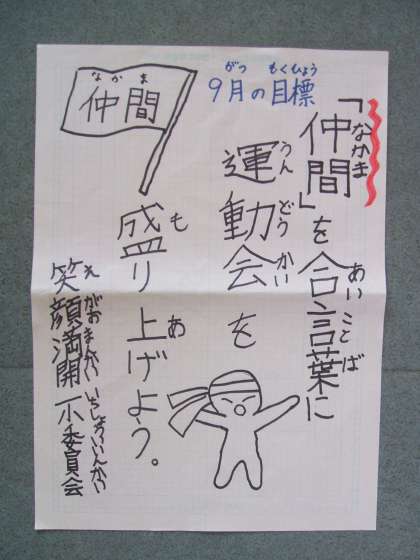 がつ もくひょう
9月の目標
「仲間」を合言葉に
なかま あいことば
運動会を
うんどうかい
盛り上げよう。
も あ
笑顔満開 一小委員会
えがおまんかい いちしょういいんかい
なかま
仲間